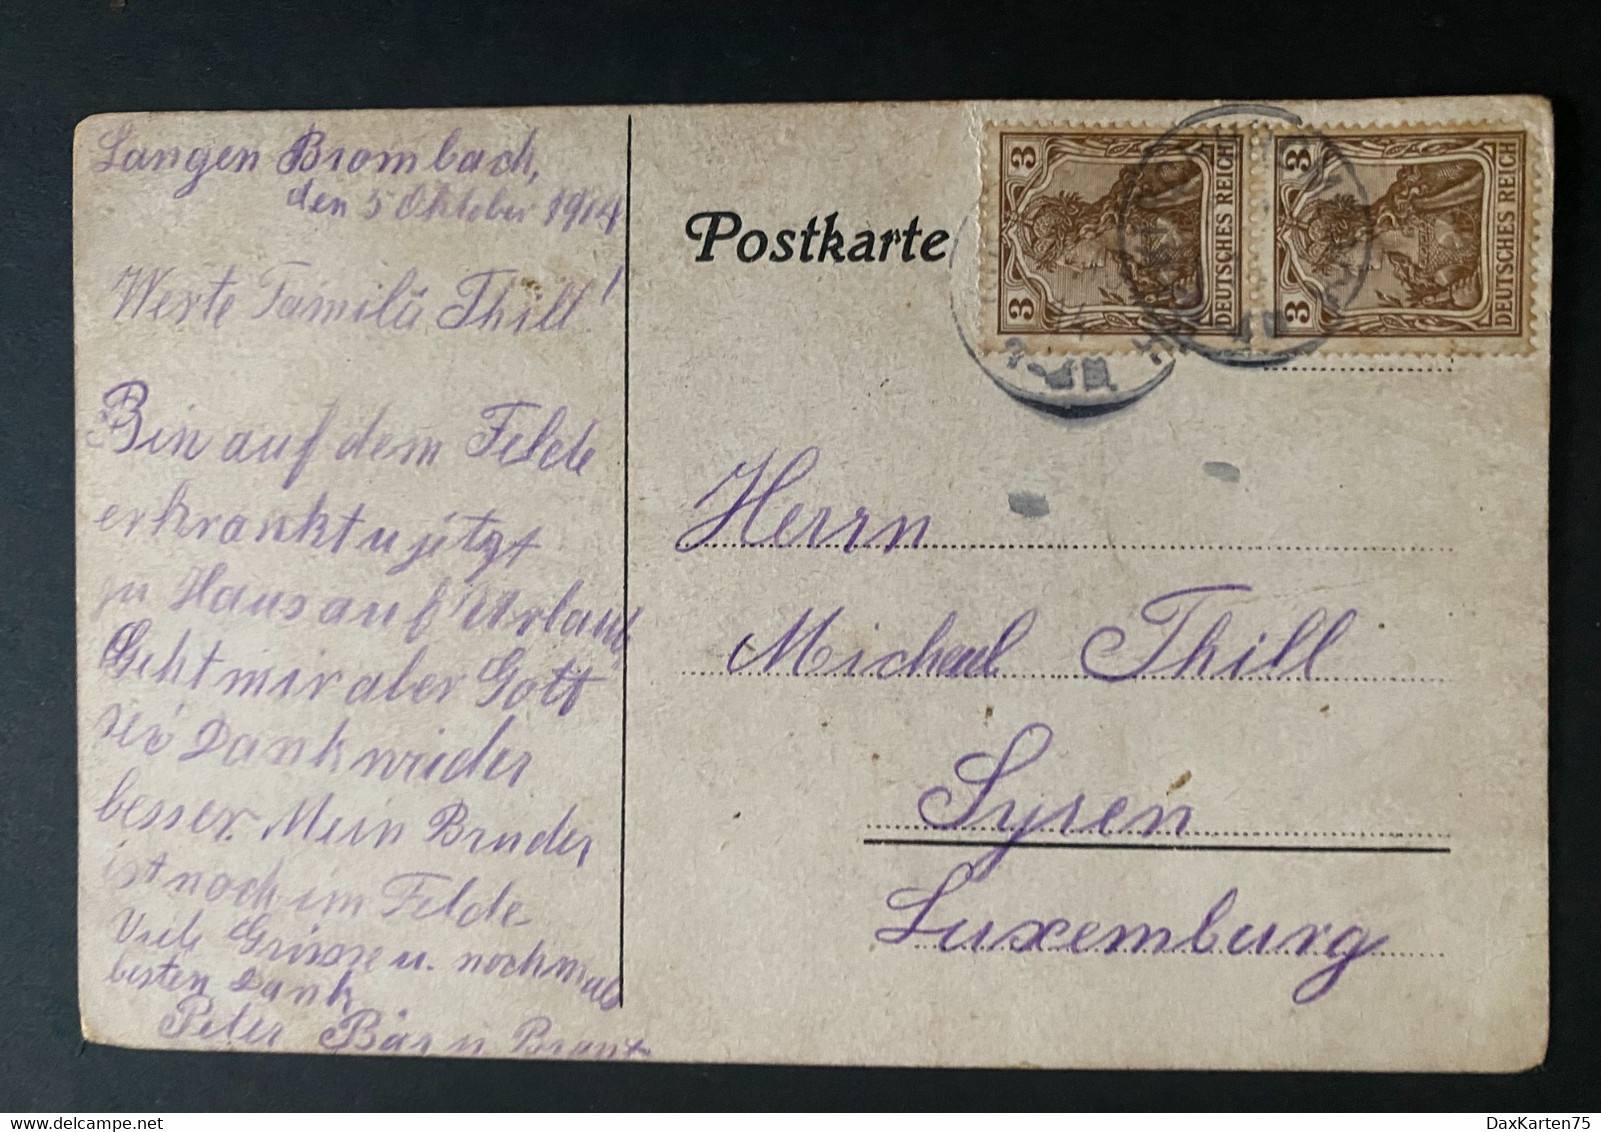 Langen Brombach,
den 5 Oktober 1914
Werte Familie Thill!
Bin auf dem Felde
erkrankt u jetzt
zu Haus auf Urlaub,
Geht mir aber Gott
sei Dank wieder
besser. Mein Bruder
ist noch im Felde
Viele Grüsse u. nochmals
besten Dank
Peter Bär u Braut
Postkarte
3
3
DEUTSCHES REICH
3
3
DEUTSCHES REICH
Herrn
Michael Thill
Syren
Luxemburg
DaxKarten75